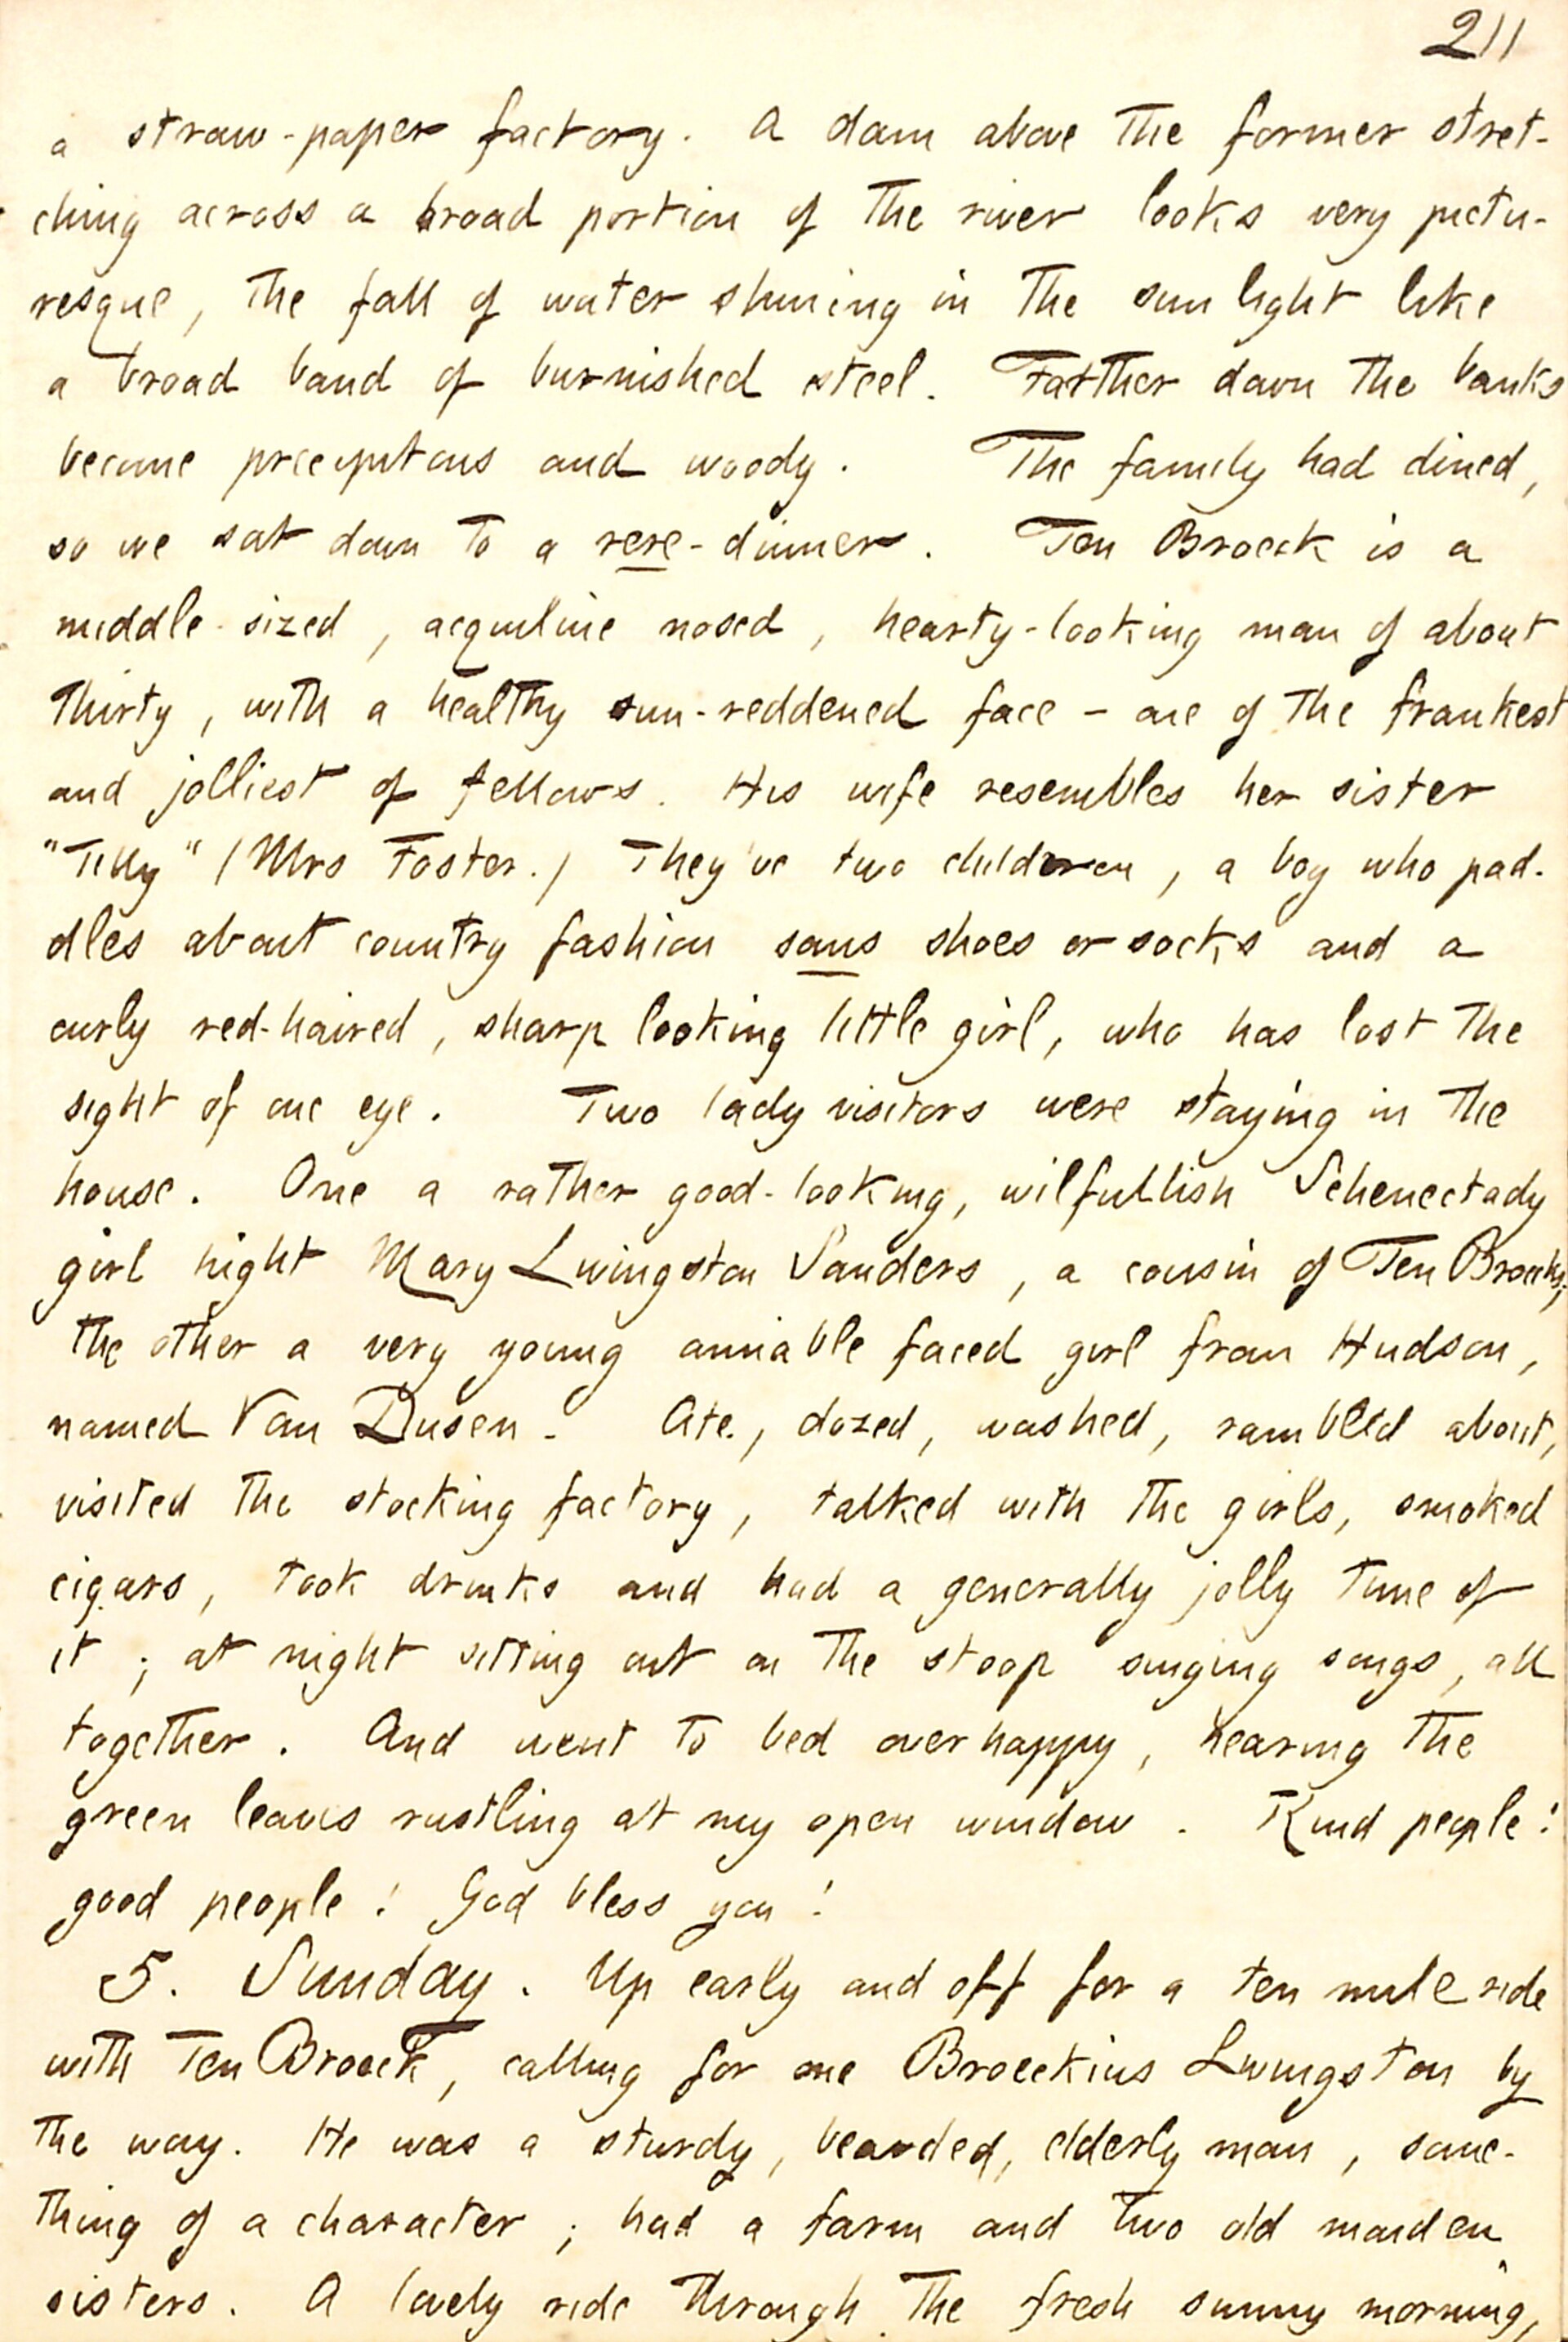 211
a straw-paper factory. A dam above the former stret-
ching across a broad portion of the river looks very pictu-
resque, the fall of water shining in the sun light like
a broad band of burnished steel. Farther down the banks
become precipitous and woody. The family had dined,
so we sat down to a rere-dinner. Ten Broeck is a
middle-sized, acquiline nosed, hearty-looking man of about
thirty, with a healthy sun-reddened face - one of the frankest
and jolliest of fellows. His wife resembles her sister
"Tilly" (Mrs Foster.) They've two children, a boy who pad-
dles about country fashion sans shoes or socks and a
curly red-haired, sharp looking little girl, who has lost the
sight of one eye. Two lady visitors were staying in the
house. One a rather good-looking, wilfullish Schenectady
girl hight Mary Livingston Sanders, a cousin of Ten Broecks;
the other a very young amiable faced girl from Hudson,
named Van Dusen. Ate, dozed, washed, rambled about,
visited the stocking factory, talked with the girls, smoked
cigars, took drinks and had a generally jolly time of
it; at night sitting out on the stoop singing songs, all
together. And went to bed over happy, hearing the
green leaves rustling at my open window. Kind people!
good people! God bless you!
5. Sunday. Up early and off for a ten mile ride
with Ten Broeck, calling for one Broeckius Livingston by
the way. He was a sturdy, bearded, elderly man, some-
thing of a character; had a farm and two old maiden
sisters. A lovely ride through the fresh sunny morning,